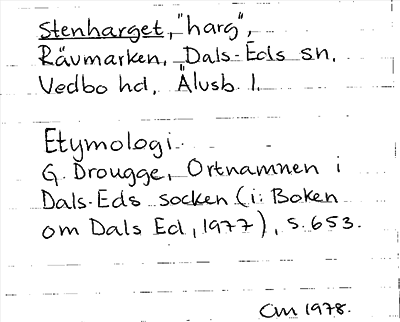 Stenharget, "harg",
Rävmarken, Dals-Eds sn,
Vedbo hd, Älvsb. l.
Etymologi
G. Drougge, Ortnamnen i
Dals-Eds socken (i: Boken
om Dals Ed, 1977), s. 653.
CM 1978.